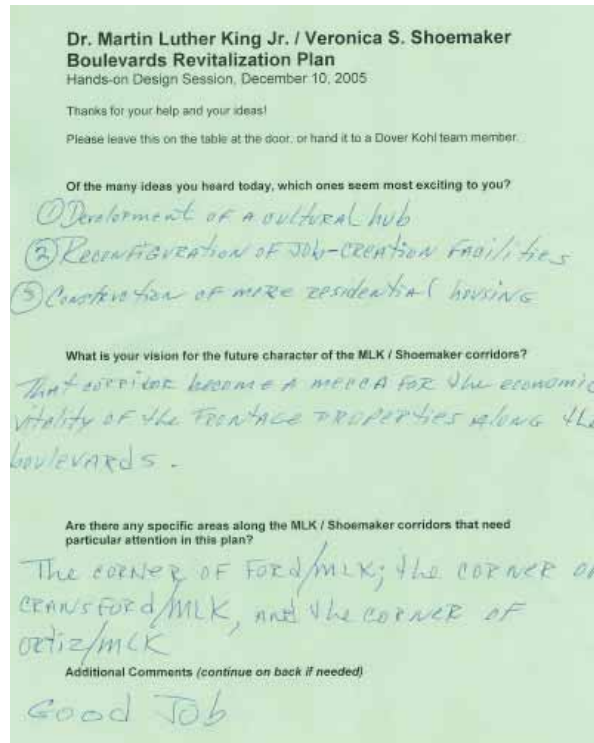 Dr. Martin Luther King Jr. / Veronica S. Shoemaker
Boulevards Revitalization Plan
Hands-on Design Session, December 10, 2005
Thanks for your help and your ideas!
Please leave this on the table at the door, or hand it to a Dover Kohl team member.
Of the many ideas you heard today, which ones seem most exciting to you?
① Development of a cultural hub
② Reconfiguration of job-creation facilities
③ Construction of more residential housing
What is your vision for the future character of the MLK / Shoemaker corridors?
That corridor become a mecca for the economic
vitality of the frontage properties along the
boulevards.
Are there any specific areas along the MLK / Shoemaker corridors that need
particular attention in this plan?
The corner of Ford/MLK; the corner of
Cransford/MLK, and the corner of
Ortiz/MLK
Additional Comments (continue on back if needed)
Good Job